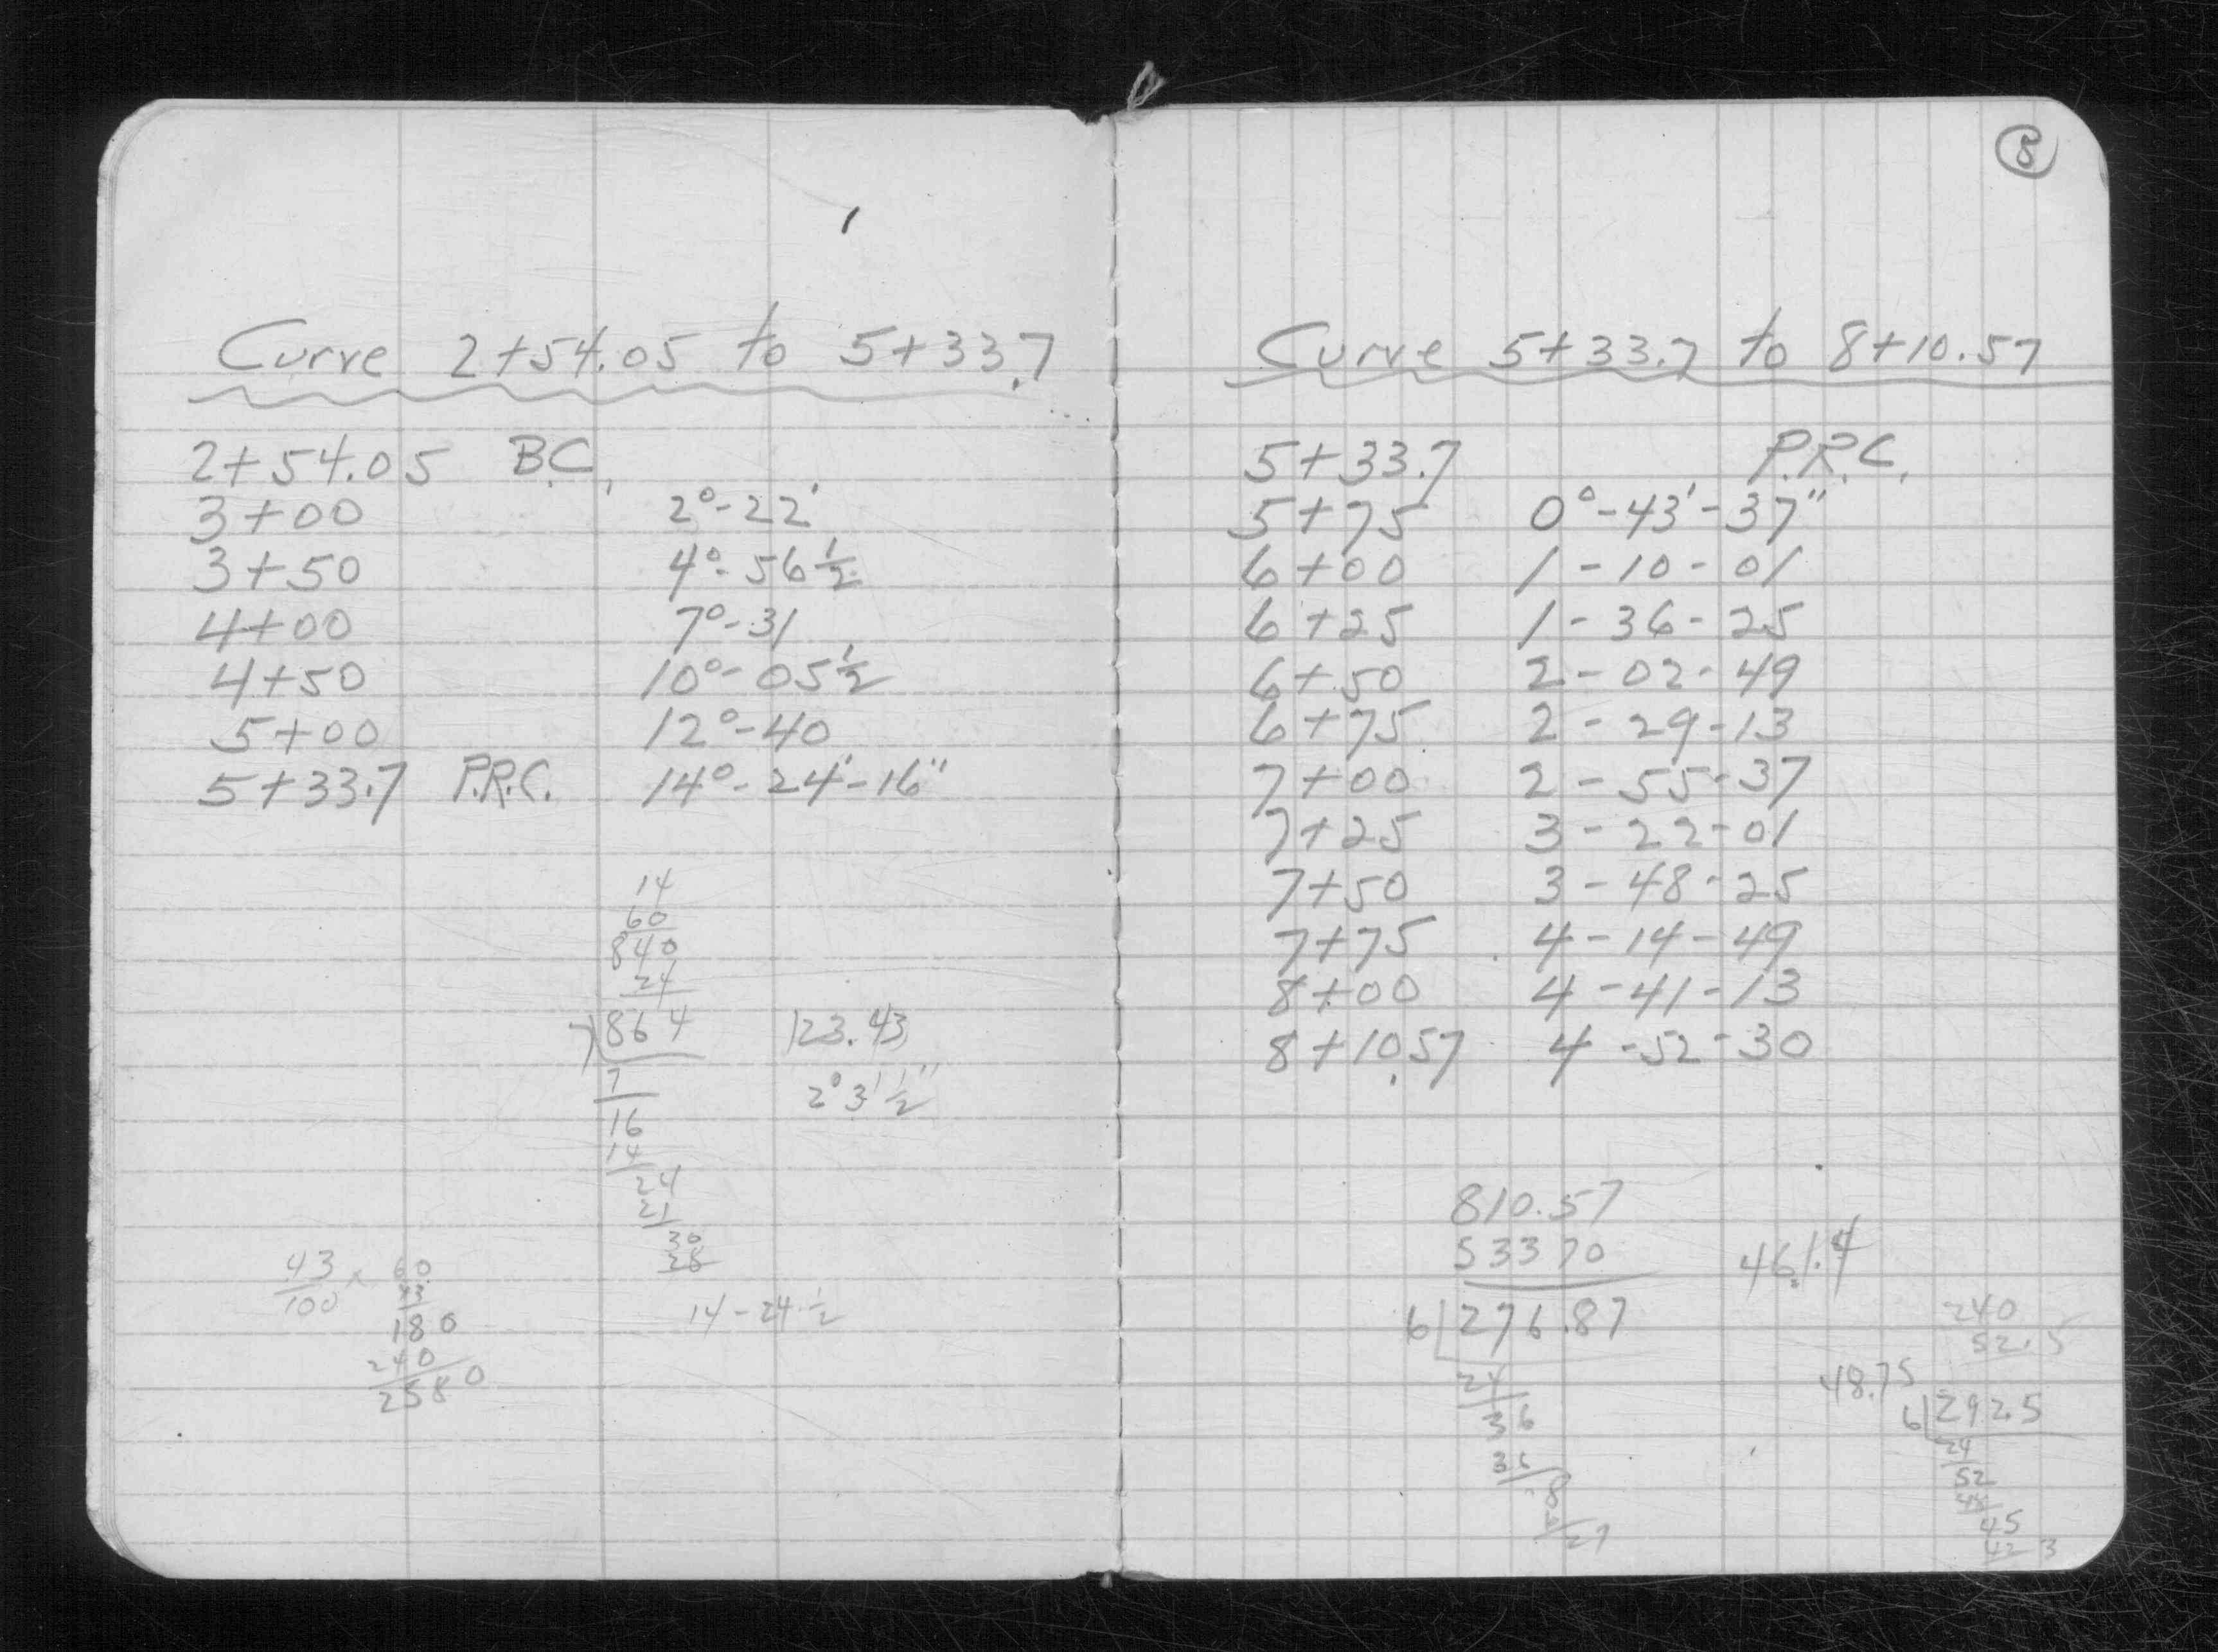 Curve 2+54.05 to 5+33.7
2+54.05 B.C.
3+00 2°-22'
3+50 4°-56 1/2
4+00 7°-31
4+50 10°-05 1/2
5+00 12°-40
5+33.7 P.R.C. 14°-24'-16"
14
60
840
24
7)864 123.43
7 2°3' 1/2"
16
14
24
21
30
28
14-24 1/2
43/100 × 60
43
180
240
2580
8
Curve 5+33.7 to 8+10.57
5+33.7 P.R.C.
5+75 0°-43'-37"
6+00 1-10-01
6+25 1-36-25
6+50 2-02-49
6+75 2-29-13
7+00 2-55-37
7+25 3-22-01
7+50 3-48-25
7+75 4-14-49
8+00 4-41-13
8+10.57 4-52-30
810.57
53370 461.4
6)276.87
24
36
36
8
27
240
52.5
48.75
6)292.5
24
52
48
45
42 3